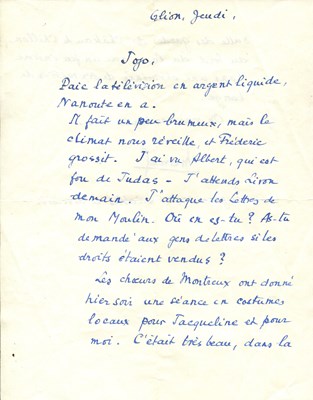 Glion, Jeudi,
Jojo,
Paie la télévision en argent liquide,
Nanoute en a.
Il fait un peu brumeux, mais le
climat nous réveille, et Fréderic
grossit. J'ai vu Albert, qui est
fou de Judas - J'attends Liron
demain. J'attaque les Lettres de
mon Moulin. Où en es-tu? As-tu
demandé aux gens de lettres si les
droits étaient vendus?
Les chœurs de Montreux ont donné
hier soir une séance en costumes
locaux pour Jacqueline et pour
moi. C'était très beau, dans la